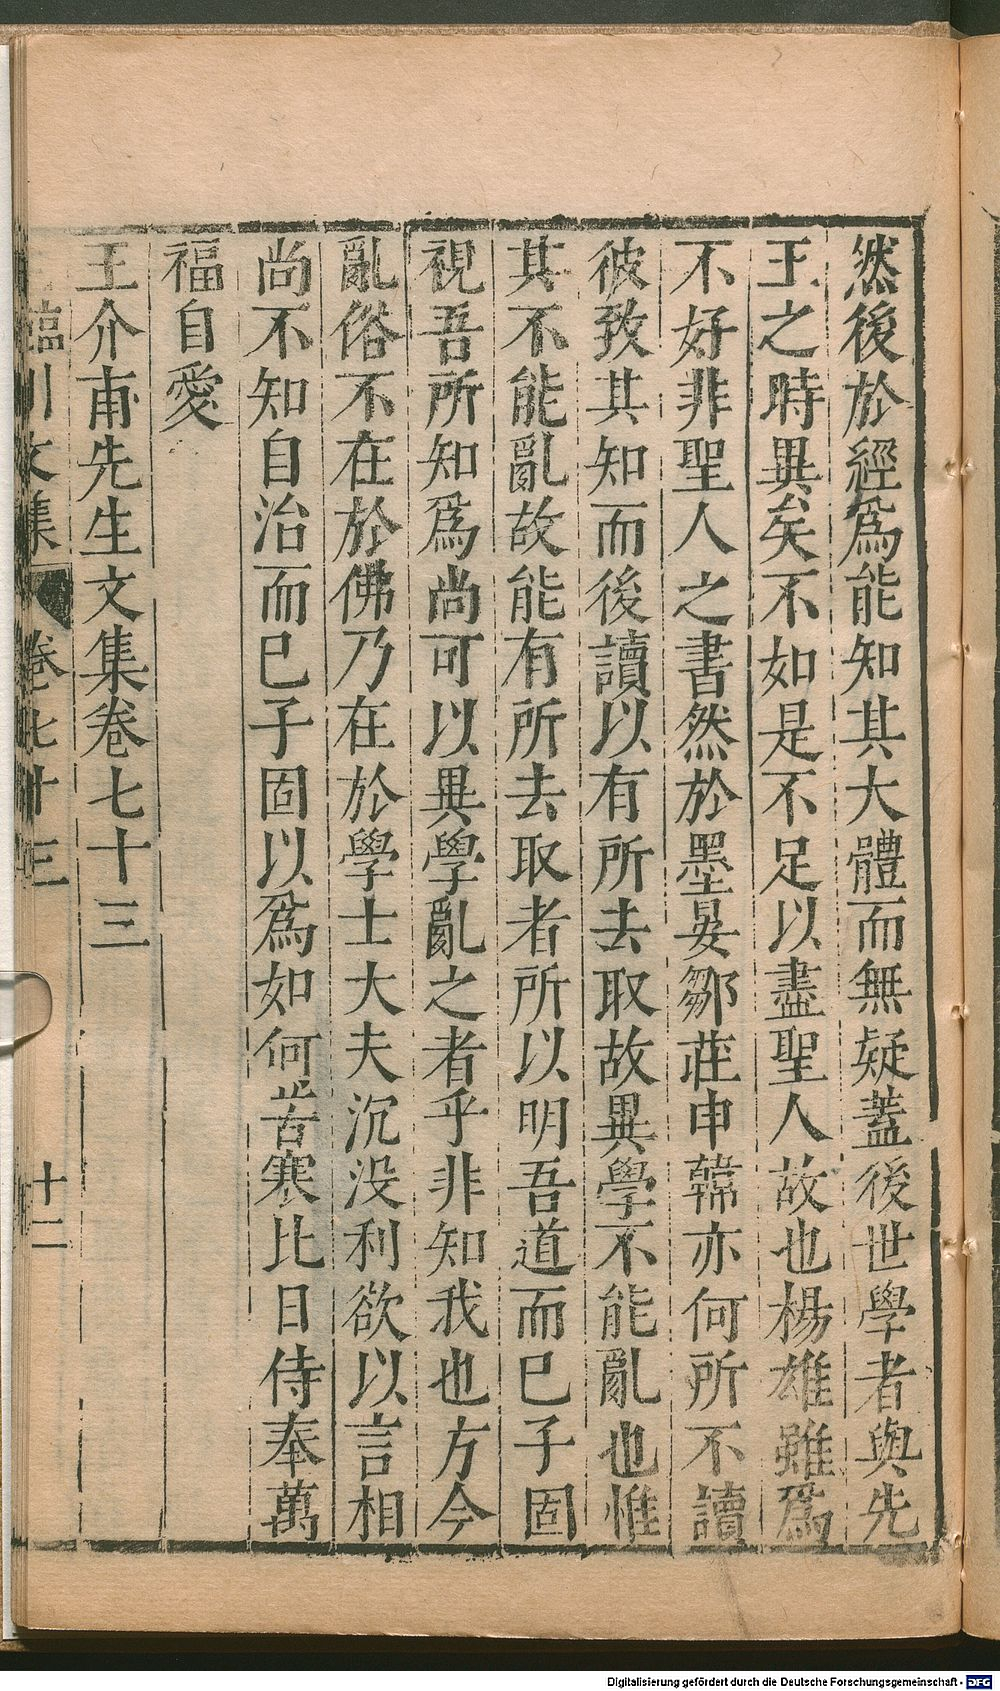 然後於經爲能知其大體而無疑蓋後世學者與先
王之時異矣不如是不足以盡聖人故也楊雄雖爲
不好非聖人之書然於墨晏鄒莊申韓亦何所不讀
彼致其知而後讀以有所去取故異學不能亂也惟
其不能亂故能有所去取者所以明吾道而已子固
視吾所知爲尚可以異學亂之者乎非知我也方今
亂俗不在於佛乃在於學士大夫沉没利欲以言相
尚不知自治而已子固以爲如何苦寒比日侍奉萬
福自愛
王介甫先生文集卷七十三
臨川文集 卷七十三 十二
Digitalisierung gefördert durch die Deutsche Forschungsgemeinschaft - DFG